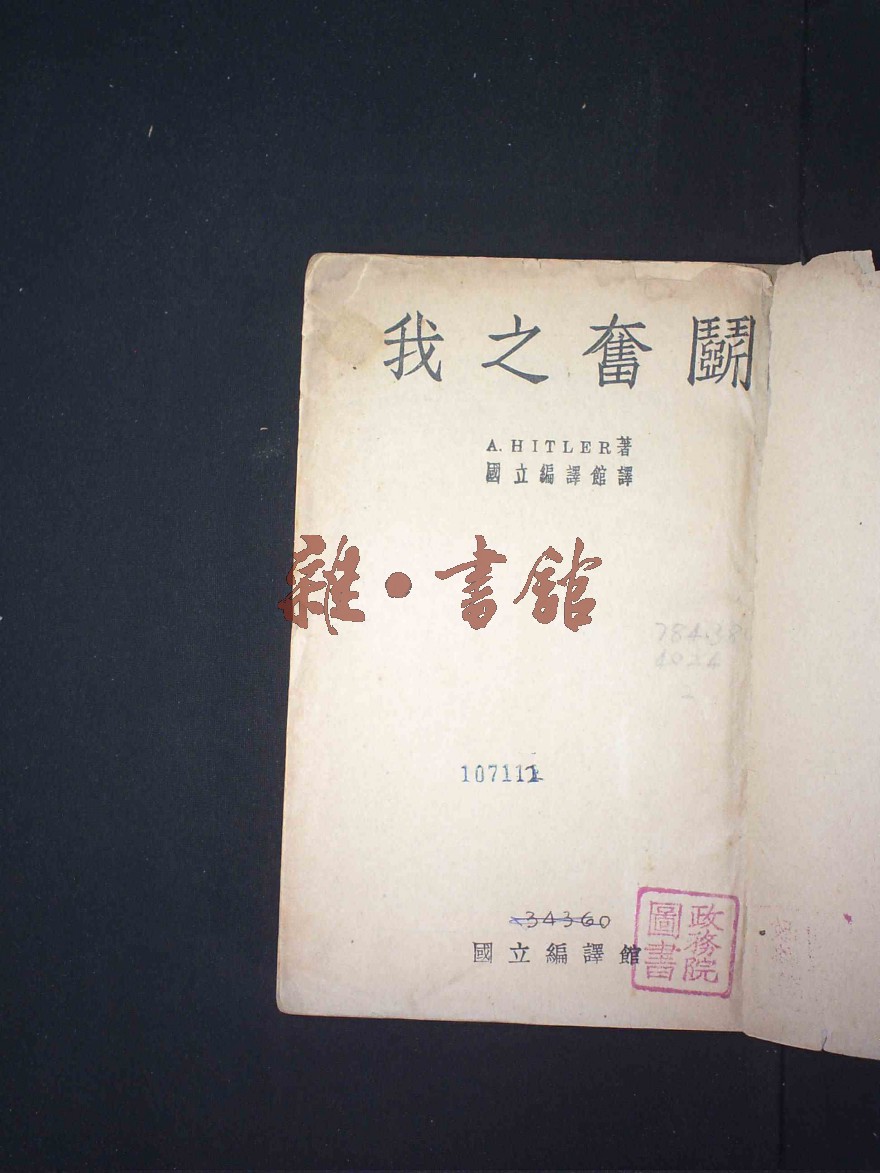 我之奮鬭
A. HITLER著
國立編譯館譯
雜·書館
784.38
4024
2
107111
34360
國立編譯館
政務院
圖書